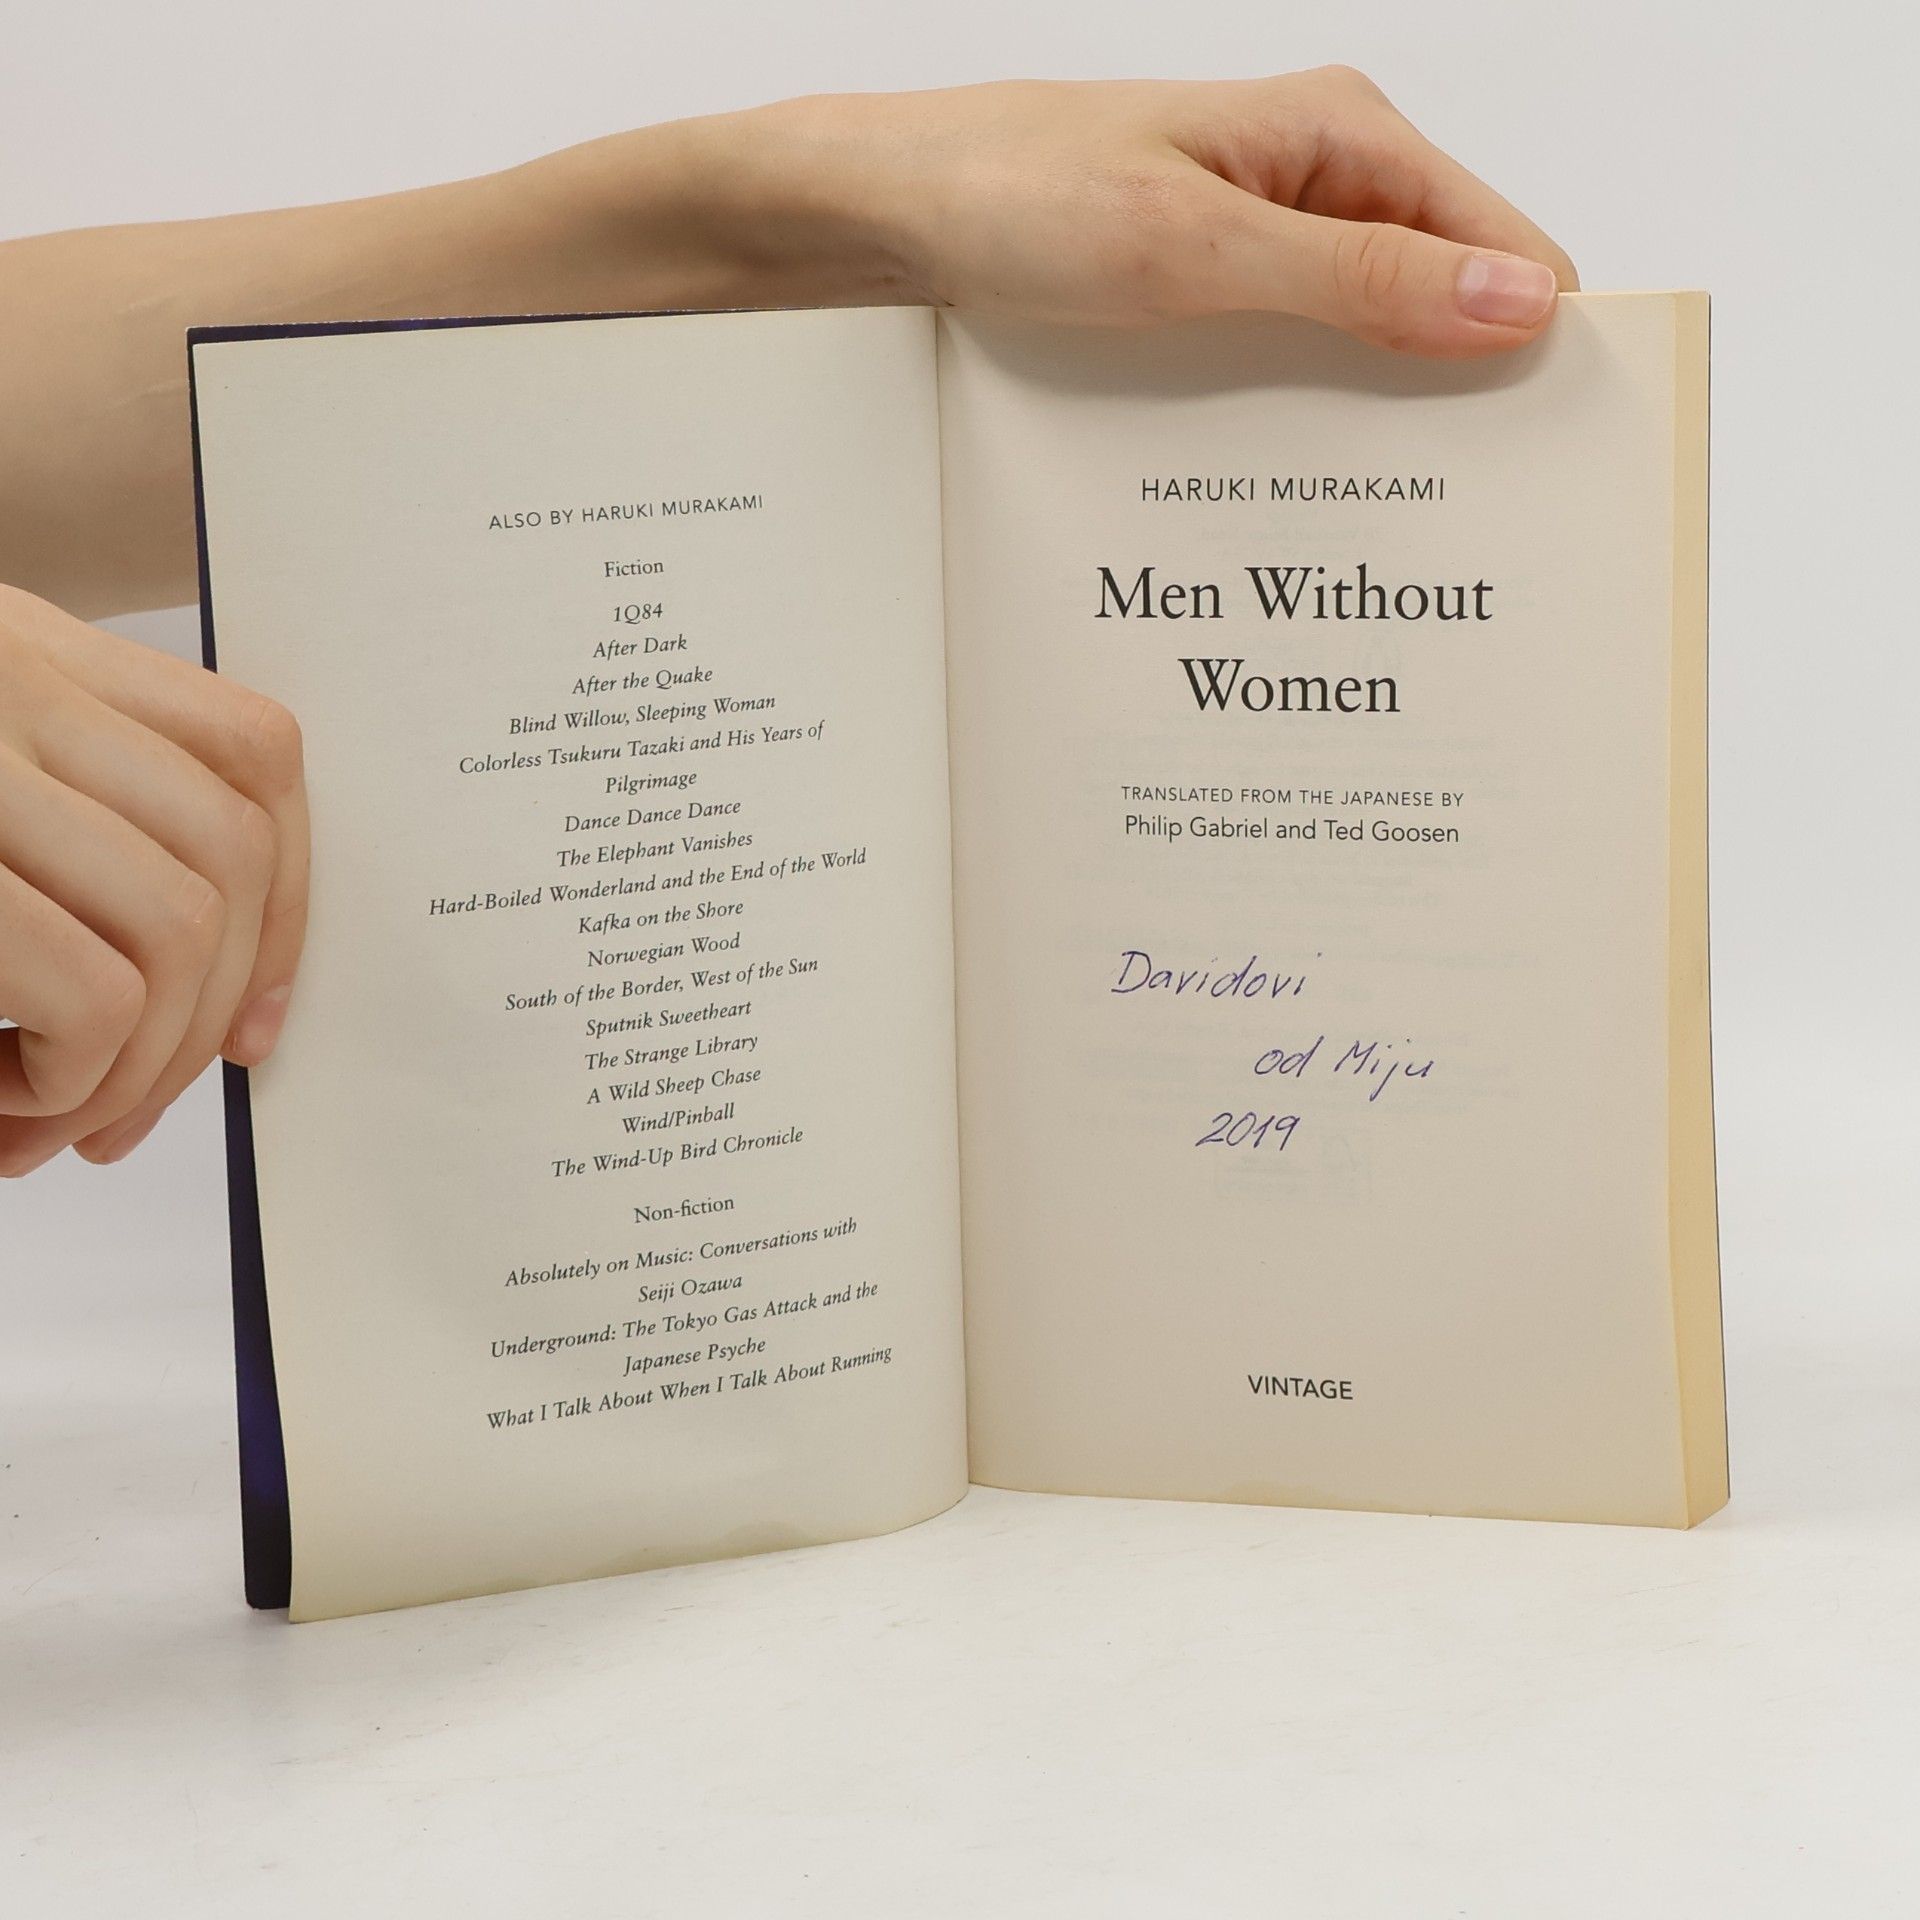 ALSO BY HARUKI MURAKAMI
Fiction
1Q84
After Dark
After the Quake
Blind Willow, Sleeping Woman
Colorless Tsukuru Tazaki and His Years of
Pilgrimage
Dance Dance Dance
The Elephant Vanishes
Hard-Boiled Wonderland and the End of the World
Kafka on the Shore
Norwegian Wood
South of the Border, West of the Sun
Sputnik Sweetheart
The Strange Library
A Wild Sheep Chase
Wind/Pinball
The Wind-Up Bird Chronicle
Non-fiction
Absolutely on Music: Conversations with
Seiji Ozawa
Underground: The Tokyo Gas Attack and the
Japanese Psyche
What I Talk About When I Talk About Running
HARUKI MURAKAMI
Men Without
Women
TRANSLATED FROM THE JAPANESE BY
Philip Gabriel and Ted Goosen
Davidovi
od Miju
2019
VINTAGE